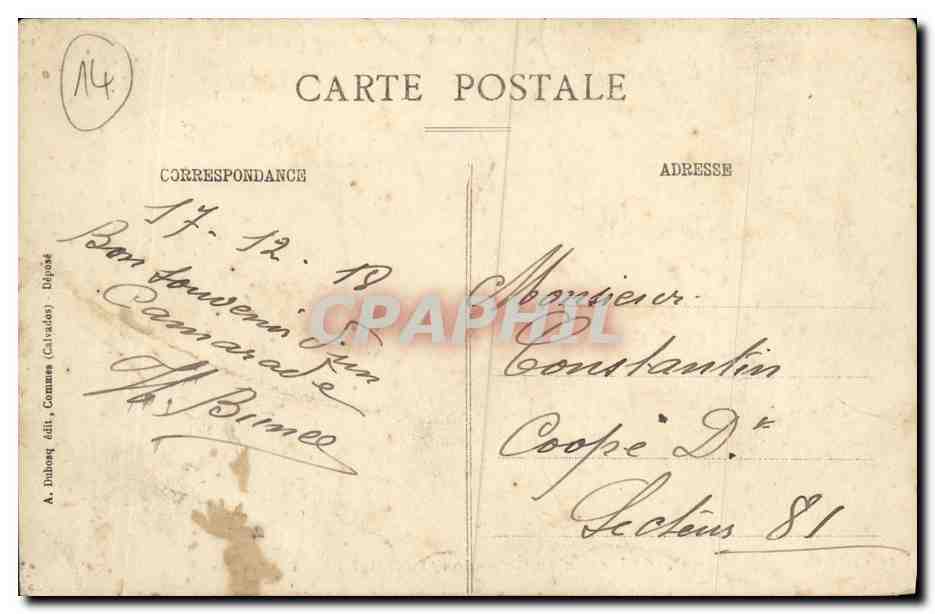 14
CARTE POSTALE
CORRESPONDANCE
ADRESSE
17-12.18
Bon souvenir d'un
Camarade
A. Dubosq édit, Commes (Calvados) - Déposé
CPAPHIL
Monsieur
Constantin
Coopé D.
Secteur 81